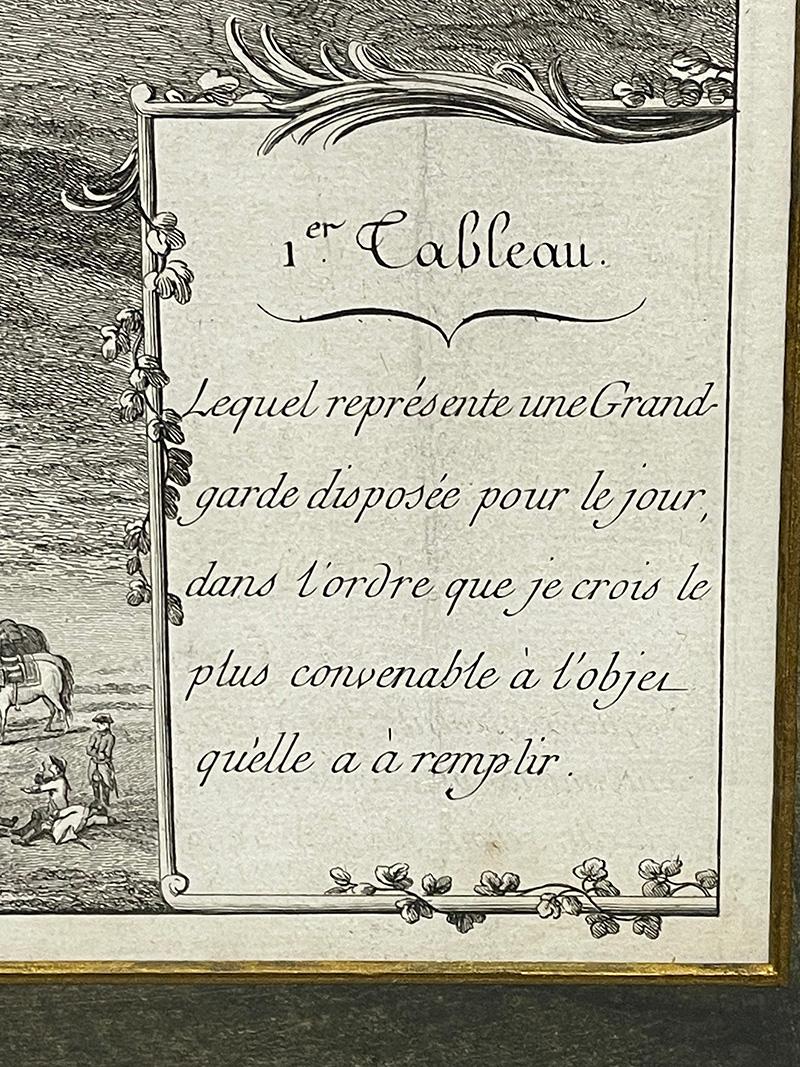 1.er Tableau.
Lequel représente une Grand-
garde disposée pour le jour,
dans l'ordre que je crois le
plus convenable à l'objet
qu'elle a à remplir.